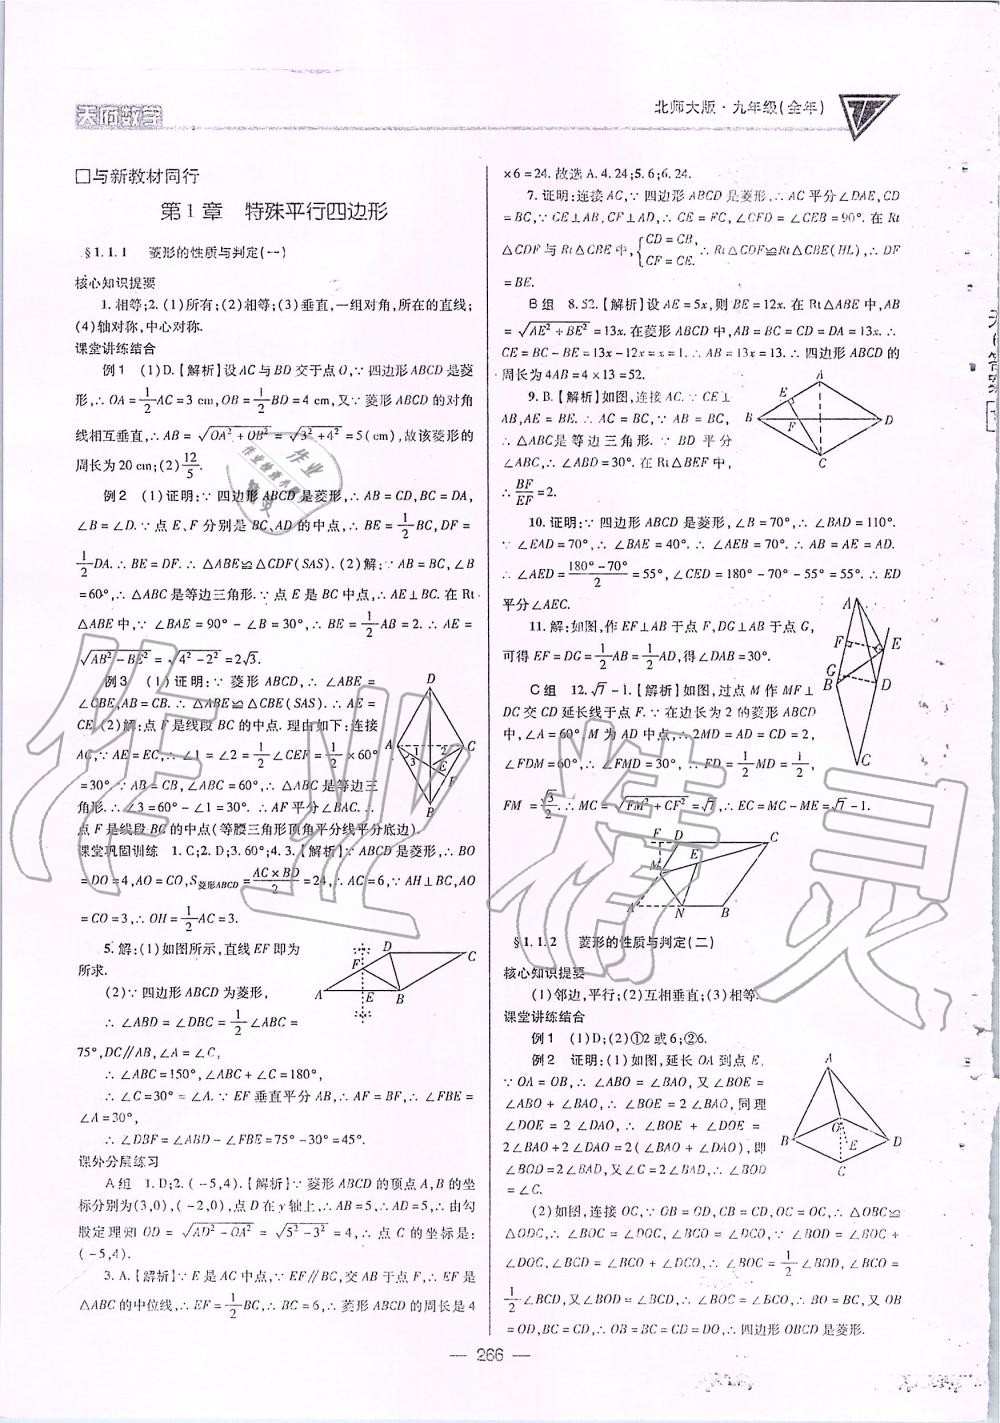 天府数学
北师大版·九年级(全年)
与新教材同行
第1章 特殊平行四边形
§1.1.1 菱形的性质与判定(一)
核心知识提要
1.相等;2.(1)所有;(2)相等;(3)垂直,一组对角,所在的直线;
(4)轴对称,中心对称.
课堂讲练结合
例1 (1)D.【解析】设AC与BD交于点O,∵四边形ABCD是菱
形,∴OA=1/2AC=3 cm,OB=1/2BD=4 cm,又∵菱形ABCD的对角
线相互垂直,∴AB=√(OA²+OB²)=√(3²+4²)=5(cm),故该菱形的
周长为20 cm;(2)12/5.
例2 (1)证明:∵四边形ABCD是菱形,∴AB=CD,BC=DA,
∠B=∠D.∵点E、F分别是BC,AD的中点,∴BE=1/2BC,DF=
1/2DA.∴BE=DF.∴△ABE≌△CDF(SAS).(2)解:∵AB=BC,∠B
=60°,∴△ABC是等边三角形.∵点E是BC中点,∴AE⊥BC.在Rt
△ABE中,∵∠BAE=90°-∠B=30°,∴BE=1/2AB=2.∴AE=
√(AB²-BE²)=√(4²-2²)=2√3.
例3 (1)证明:∵菱形ABCD,∴∠ABE=
∠CBE,AB=CB.∴△ABE≌△CBE(SAS).∴AE=
CE.(2)解:点F是线段BC的中点.理由如下:连接
AC,∵AE=EC,∴∠1=∠2=1/2∠CEF=1/2×60°
=30°.∵AB=CB,∠ABC=60°,∴△ABC是等边三
角形.∴∠3=60°-∠1=30°.∴AF平分∠BAC.∴
点F是线段BC的中点(等腰三角形顶角平分线平分底边).
D
A
1
2
C
3
E
F
B
课堂巩固训练 1.C;2.D;3.60°;4.3.【解析】∵ABCD是菱形,∴BO
=DO=4,AO=CO,S菱形ABCD=(AC×BD)/2=24,∴AC=6,∵AH⊥BC,AO
=CO=3,∴OH=1/2AC=3.
5.解:(1)如图所示,直线EF即为
所求.
(2)∵四边形ABCD为菱形,
∴∠ABD=∠DBC=1/2∠ABC=
75°,DC∥AB,∠A=∠C,
∴∠ABC=150°,∠ABC+∠C=180°,
∴∠C=30°=∠A.∵EF垂直平分AB,∴AF=BF,∴∠FBE=
∠A=30°,
∴∠DBF=∠ABD-∠FBE=75°-30°=45°.
D
C
F
A
E
B
课外分层练习
A组 1.D;2.(-5,4).【解析】∵菱形ABCD的顶点A,B的坐
标分别为(3,0),(-2,0),点D在y轴上,∴AB=5,∴AD=5,∴由勾
股定理知OD=√(AD²-OA²)=√(5²-3²)=4,∴点C的坐标是:
(-5,4).
3.A.【解析】∵E是AC中点,∵EF∥BC,交AB于点F,∴EF是
△ABC的中位线,∴EF=1/2BC,∴BC=6,∴菱形ABCD的周长是4
×6=24.故选A.4.24;5.6;6.24.
7.证明:连接AC,∵四边形ABCD是菱形,∴AC平分∠DAE,CD
=BC,∵CE⊥AB,CF⊥AD,∴CE=FC,∠CFD=∠CEB=90°.在Rt
△CDF与Rt△CBE中,{CD=CB,CF=CE.∴Rt△CDF≌Rt△CBE(HL),∴DF
=BE.
B组 8.52.【解析】设AE=5x,则BE=12x.在Rt△ABE中,AB
=√(AE²+BE²)=13x.在菱形ABCD中,AB=BC=CD=DA=13x.∴
CE=BC-BE=13x-12x=x=1.∴四边形ABCD的
周长为4AB=4×13=52.
9.B.【解析】如图,连接AC.∵CE⊥
AB,AE=BE.∴AC=BC,∵AB=BC,∴
△ABC是等边三角形.∵BD平分
∠ABC,∴∠ABD=30°.在Rt△BEF中,
∴BF/EF=2.
A
E
B
F
D
C
10.证明:∵四边形ABCD是菱形,∠B=70°,∴∠BAD=110°.
∵∠EAD=70°,∴∠BAE=40°.∴∠AEB=70°.∴AB=AE=AD.
∴∠AED=(180°-70°)/2=55°,∠CED=180°-70°-55°=55°.∴ED
平分∠AEC.
11.解:如图,作EF⊥AB于点F,DG⊥AB于点G,
可得EF=DG=1/2AB=1/2AD,得∠DAB=30°.
A
F
E
G
B
D
C
C组 12.√7-1.【解析】如图,过点M作MF⊥
DC交CD延长线于点F.∵在边长为2的菱形ABCD
中,∠A=60°,M为AD中点,∴2MD=AD=CD=2,
∠FDM=60°,∴∠FMD=30°,∴FD=1/2MD=1/2,∴
FM=√3/2.∴MC=√(FM²+CF²)=√7,∴EC=MC-ME=√7-1.
F
D
C
M
E
A
N
B
§1.1.2 菱形的性质与判定(二)
核心知识提要
(1)邻边,平行;(2)互相垂直;(3)相等.
课堂讲练结合
例1 (1)D;(2)①2或6;②6.
例2 证明:(1)如图,延长OA到点E,
∵OA=OB,∴∠ABO=∠BAO,又∠BOE=
∠ABO+∠BAO,∴∠BOE=2∠BAO,同理
∠DOE=2∠DAO,∴∠BOE+∠DOE=
2∠BAO+2∠DAO=2(∠BAO+∠DAO),即
∠BOD=2∠BAD,又∠C=2∠BAD,∴∠BOD
=∠C.
A
O
B
E
D
C
(2)如图,连接OC,∵OB=OD,CB=CD,OC=OC,∴△OBC≌
△ODC,∴∠BOC=∠DOC,∠BCO=∠DCO,∵∠BOD=∠BOC+
∠DOC,∠BCD=∠BCO+∠DCO,∴∠BOC=1/2∠BOD,∠BCO=
1/2∠BCD,又∠BOD=∠BCD,∴∠BOC=∠BCO,∴BO=BC,又OB
=OD,BC=CD,∴OB=BC=CD=DO,∴四边形OBCD是菱形.
— 266 —
作业精灵